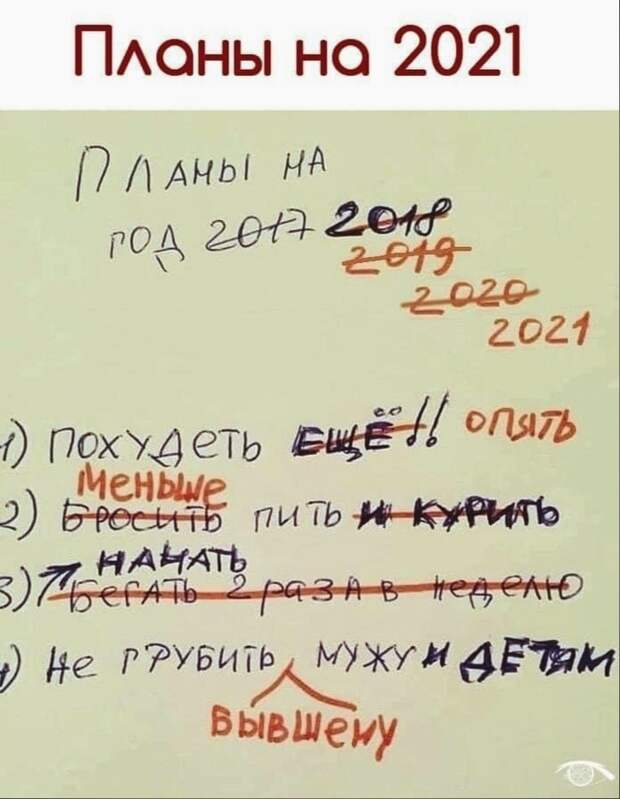 Планы на 2021
ПЛАНЫ НА
ГОД 2017 2018
2019
2020
2021
1) ПОХУДЕТЬ ЕЩЁ!! ОПЯТЬ
МЕНЬШЕ
2) БРОСИТЬ ПИТЬ И КУРИТЬ
НАЧАТЬ
3) БЕГАТЬ 2 РАЗА В НЕДЕЛЮ
4) НЕ ГРУБИТЬ МУЖУ И ДЕТЯМ
БЫВШЕМУ